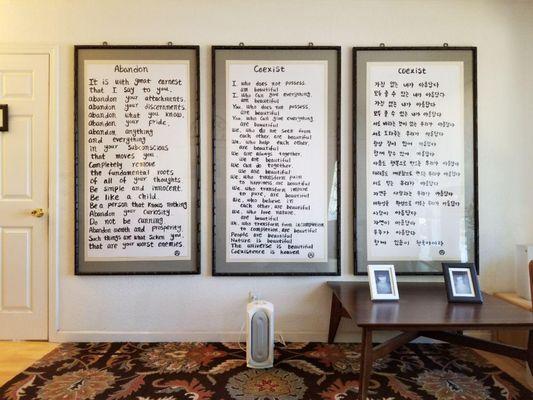 Abandon
It is with great earnest
that I say to you.
abandon your attachments.
abandon your discernments.
abandon what you know.
abandon your pride.
abandon anything
and everything
in your subconscious
that moves you.
Completely remove
the fundamental roots
of all of your thoughts.
Be simple and innocent.
Be like a child.
Be a person that knows nothing
Abandon your curiosity
Do not be cunning.
Abandon wealth and prosperity.
Such things are what sicken you.
that are your worst enemies.
Coexist
I, who does not possess.
am beautiful
I, who can give everything,
am beautiful
You, who does not possess,
are beautiful
You, who can give everything,
are beautiful
We, who do not seek from
each other, are beautiful
We, who help each other,
are beautiful
We are always together,
we are beautiful
We can do together
we are beautiful
We, who transform pain
to happiness are beautiful
We, who transform
to pure, are beautiful
We, who believe in
each other, are beautiful
We, who love nature,
are beautiful
We, who transform from incompletion
to completion are beautiful
People are beautiful
Nature is beautiful
The universe is beautiful
Coexistence is heaven
coexist
가진 것 없는 내가 아름답다
모두 줄 수 있는 내가 아름답다
가진 것 없는 네가 아름답다
모두 줄 수 있는 네가 아름답다
서로 바라는 것이 없는 우리가 아름답다
서로 도와주는 우리가 아름답다
항상 함께 있어 아름답다
함께 할수 있어 아름답다
아픔도 행복으로 만드는 우리가 아름답다
만드는 우리가 아름답다
서로 믿는 우리가 아름답다
자연을 사랑하는 우리가 아름답다
미완성을 완성으로 만드는 우리가 아름답다
사람이 아름답다
자연이 아름답다
우주가 아름답다
함께 있음이